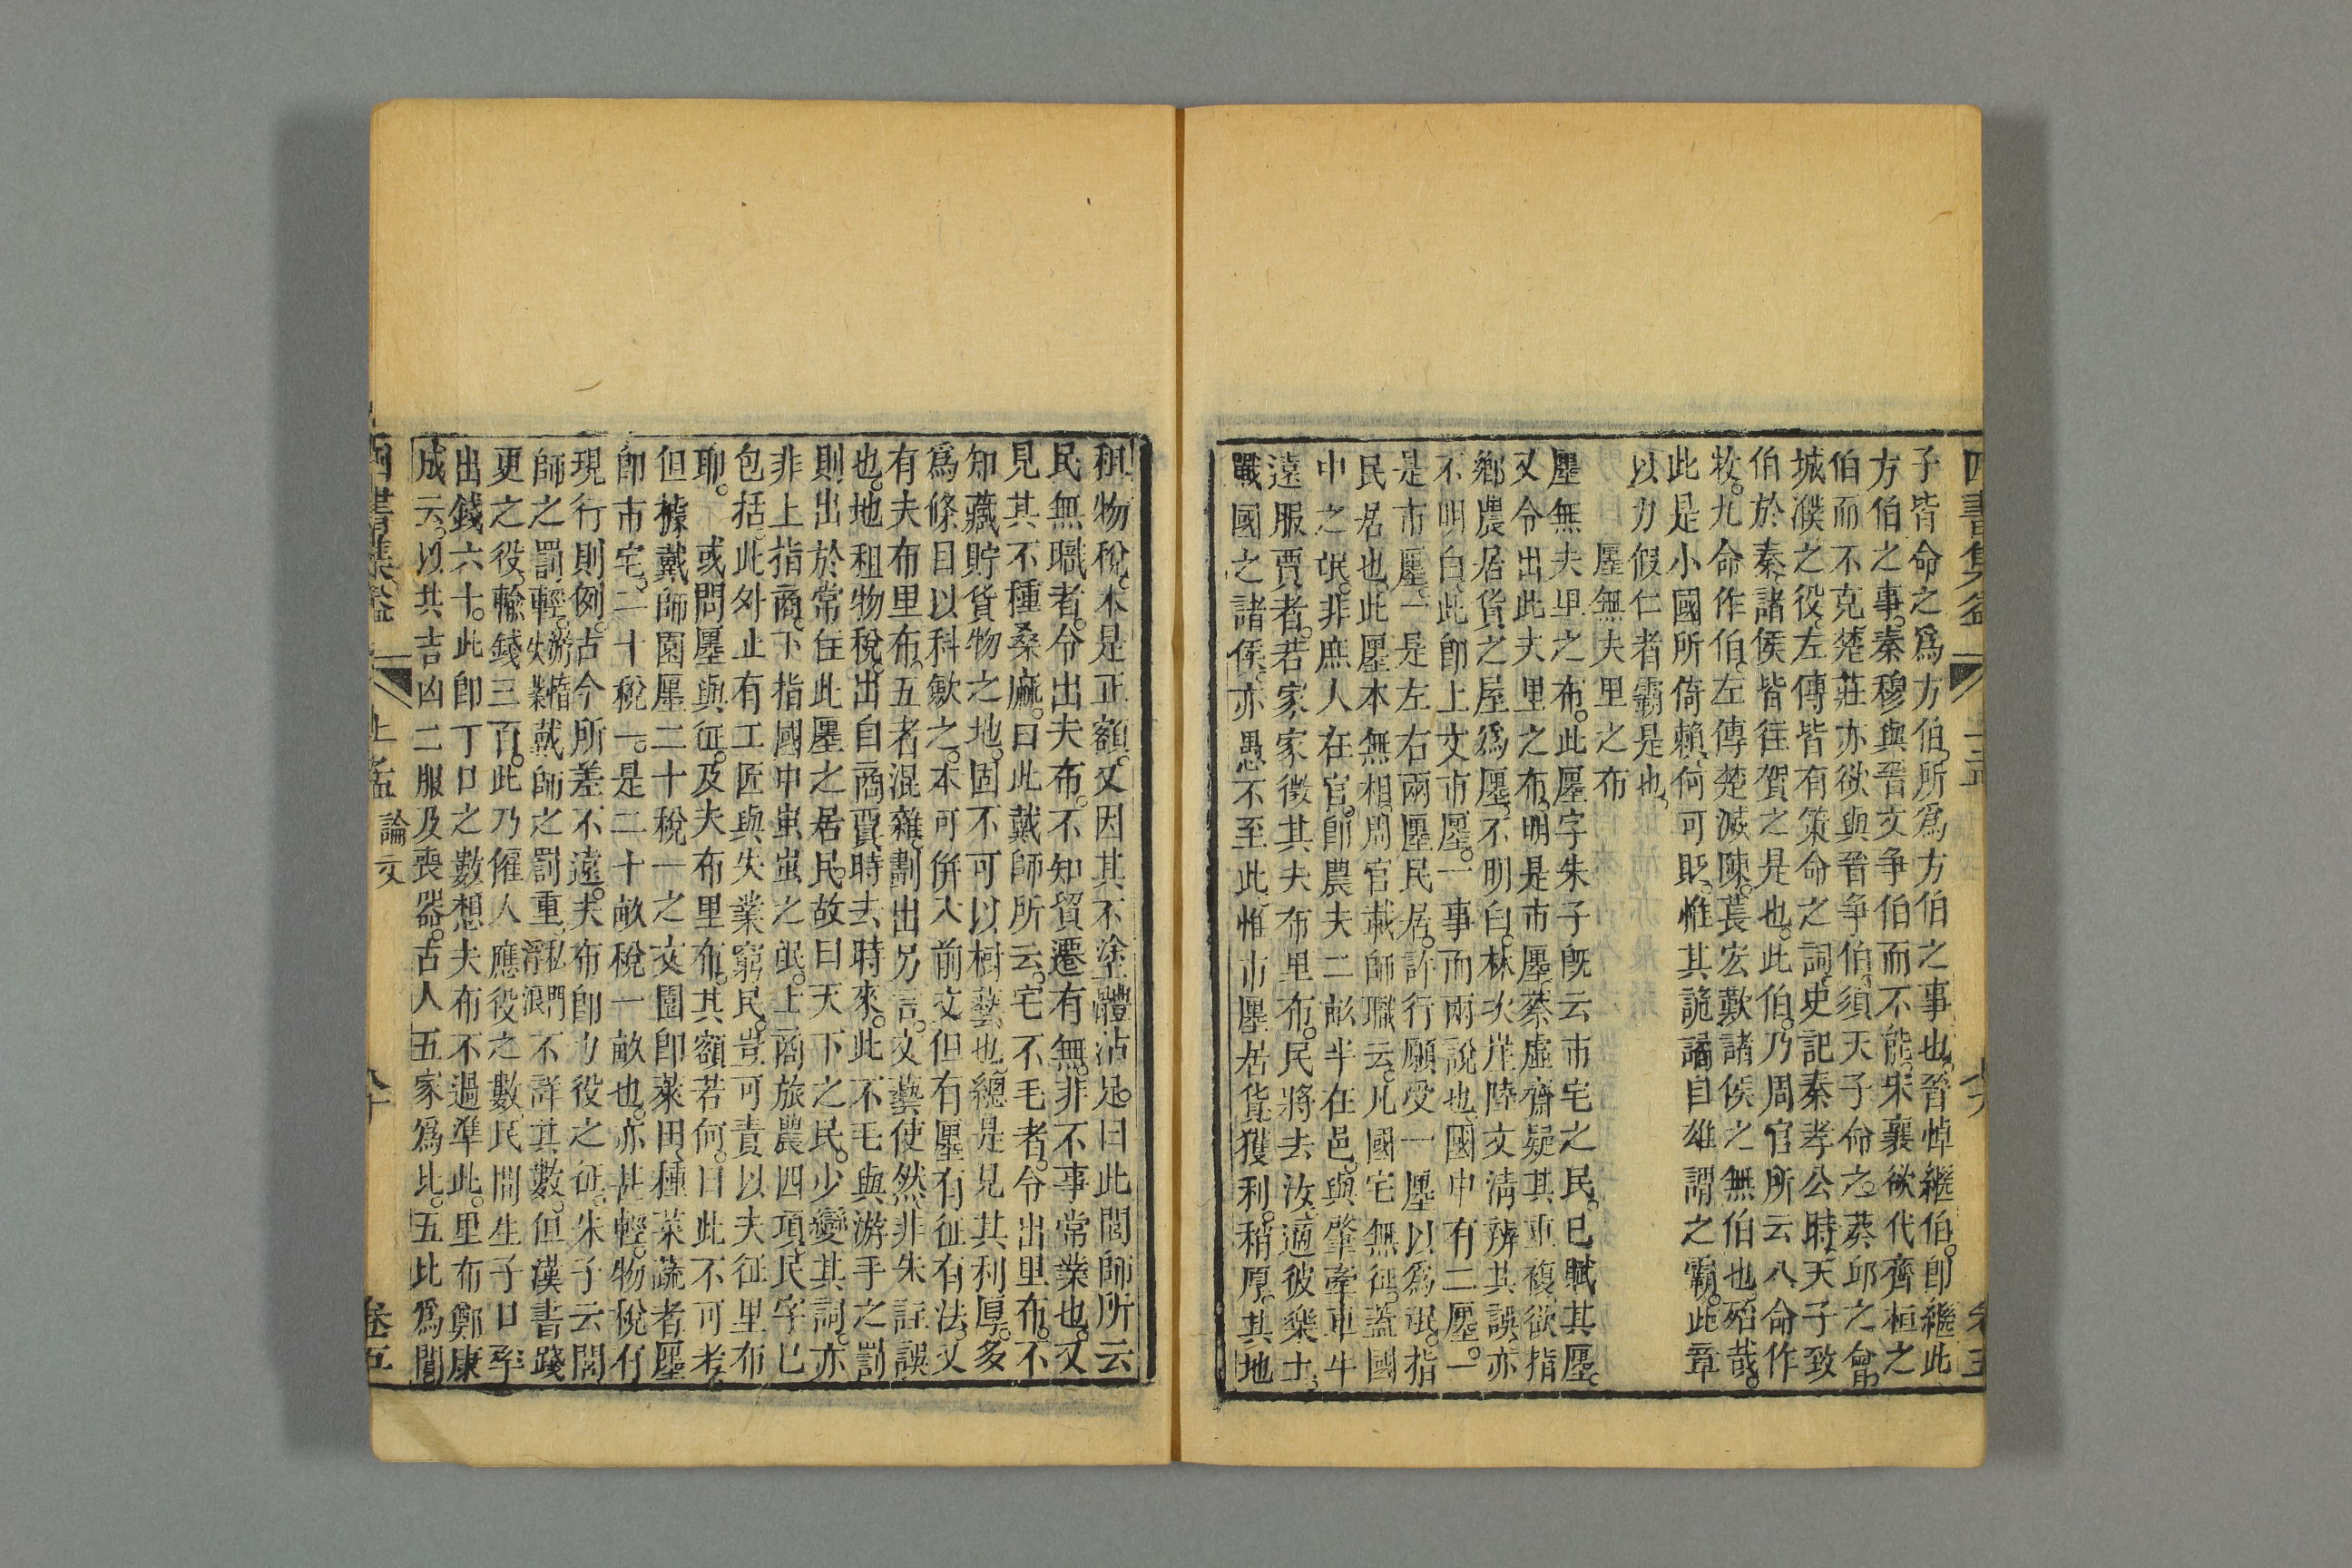 子皆命之爲方伯所爲方伯之事也晉悼繼伯卽繼此
方伯之事秦穆與晉文爭伯而不能宋襄欲代齊桓之
伯而不克楚莊亦欲與晉爭伯須天子命之葵邱之會
城濮之役左傳皆有策命之詞史記秦孝公時天子致
伯於秦諸侯皆往賀之是也此伯乃周官所云八命作
牧九命作伯左傳楚滅陳萇宏歎諸侯之無伯也殆哉
此是小國所倚賴何可貶惟其詭譎自雄謂之霸此章
以力假仁者霸是也
廛無夫里之布
廛無夫里之布此廛字朱子旣云市宅之民已賦其廛
又令出此夫里之布明是市廛蔡虛齋疑其重複欲指
鄉農居貨之屋爲廛不明白林次崖陸文淸辨其誤亦
不明白此卽上文市廛一事而兩說也國中有二廛一
是市廛一是左右兩廛民居許行願受一廛以爲氓指
民居也此廛本無相周官載師職云凡國宅無征蓋國
中之氓非庶人在官卽農夫二畝半在邑與肇牽車牛
遠服賈者若家家徵其夫布里布民將去汝適彼樂土
戰國之諸侯亦愚不至此惟市廛居貨獲利稍厚其地
租物稅本是正額又因其不塗體沾足曰此閭師所云
民無職者令出夫布不知貿遷有無非不事常業也又
見其不種桑麻曰此載師所云宅不毛者令出里布不
知藏貯貨物之地固不可以樹藝也總是見其利厚多
爲條目以科斂之本可倂入前文但有廛有征有法又
有夫布里布五者混雜劃出另言文藝使然非朱註誤
也地租物稅出自商賈時去時來此不毛與游手之罰
則出於常住此廛之居民故曰天下之民少變其詞亦
非上指商下指國中蚩蚩之氓上商旅農四項民字已
包括此外止有工匠與失業窮民豈可責以夫征里布
耶 或問廛與征及夫布里布其額若何曰此不可考
但據戴師園廛二十稅一之文園卽菜田種菜蔬者廛
卽市宅二十稅一是二十畝稅一畝也亦甚輕物稅有
現行則例古今所差不遠夫布卽力役之征朱子云閭
師之罰輕游惰失業載師之罰重私門浮浪不詳其數但漢書踐
更之役輸錢三百此乃僱人應役之數民間生子口率
出錢六十此卽丁口之數想夫布不過準此里布鄭康
成云以共吉凶二服及喪器古人五家爲比五比爲閭
四書集益
上孟 論文
卷五